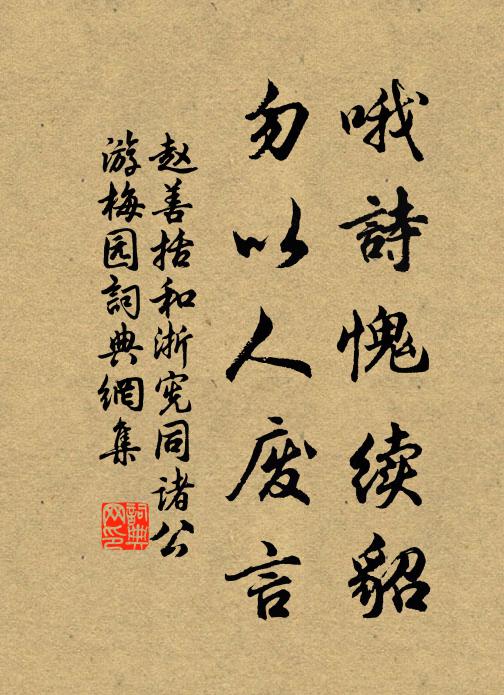 哦詩愧续貂
勿以人废言
赵善括和浙宪同诸公
游梅园词典網集
詞典
网印